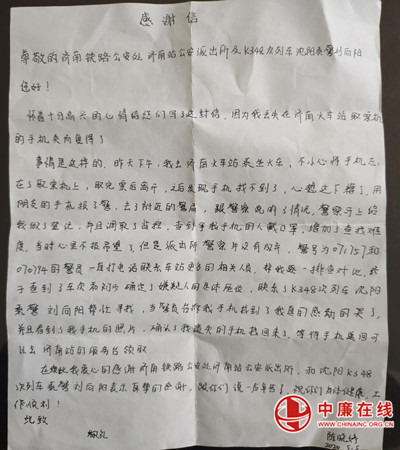 感谢信
尊敬的济南铁路公安处济南站公安派出所及K348次列车沈阳乘警刘向阳
您好！
怀着十分高兴的心情给您们写了这封信，因为我丢失在济南火车站取票机
的手机失而复得了
事情是这样的，昨天下午，我去济南火车站乘坐火车，不小心将手机丢
在了取票机上，取完票后离开，之后发现手机找不到了，心想这下糟了，用
朋友的手机报了警，去了附近的警局，跟警察说明了情况，警察马上给
我做了登记，并且调取了监控，查到拿我手机的人戴口罩，增加了查找难
度，当时心里不报希望了，但是派出所警察并没有放弃，警号为071757和
070794的警员一直打电话联系车站里的相关人员，帮我逐一排查对比，终
于查到了车次名列，确定了嫌疑人的具体座位，联系了K348次列车沈阳
乘警刘向阳帮忙寻找，当警员告诉我手机找到了我真的感动的哭了，
并且看到了我手机的照片，确认了我遗失的手机找回来了，等待手机返回可
以去济南站的服务台领取
在此我衷心的感谢济南铁路公安处济南站公安派出所，和沈阳K348
次列车乘警刘向阳表示真挚的感谢，跟你们说一声辛苦了，祝你们身体健康，工
作顺利！
此致
敬礼
陈晓婷
2020.5.5
中廉在线
WWW.CHINAINC.ORG.CN